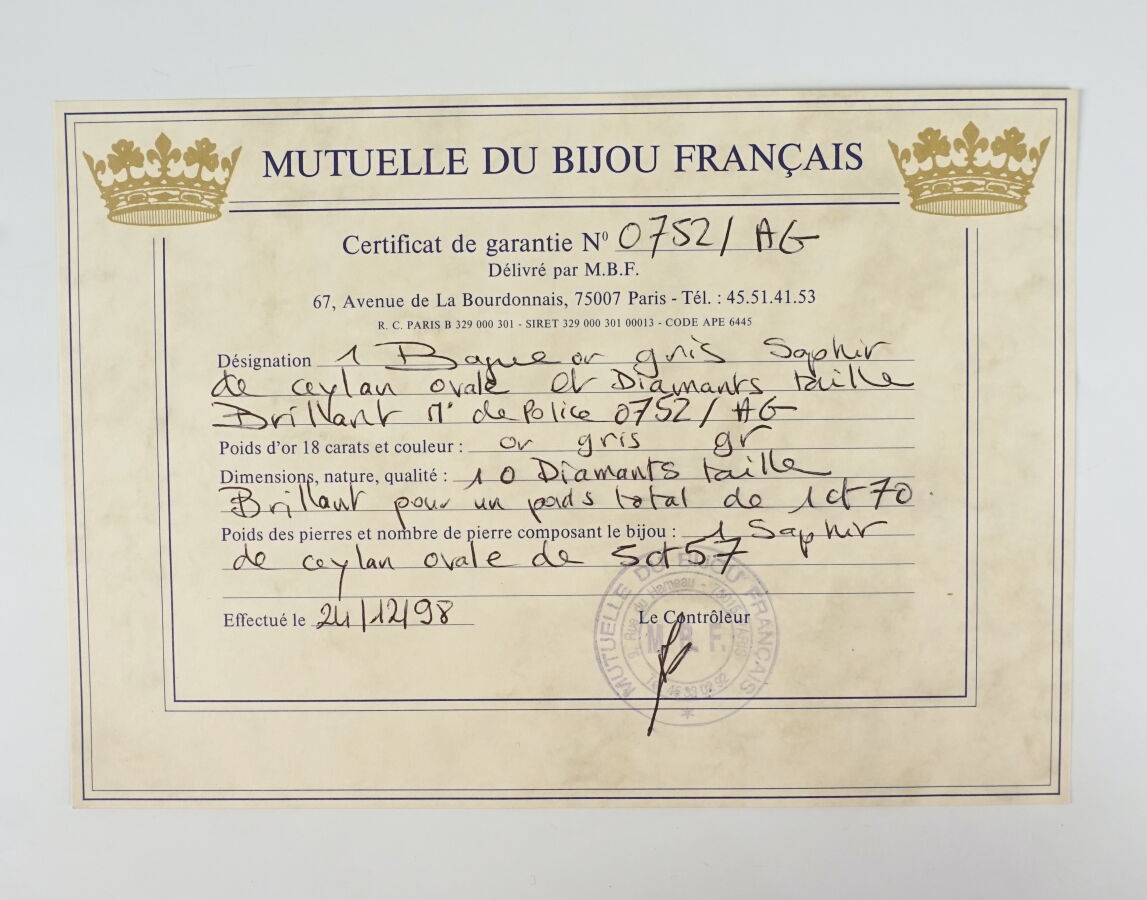 MUTUELLE DU BIJOU FRANÇAIS
Certificat de garantie Nº 0752/ AG
Délivré par M.B.F.
67, Avenue de La Bourdonnais, 75007 Paris - Tél. : 45.51.41.53
R. C. PARIS B 329 000 301 - SIRET 329 000 301 00013 - CODE APE 6445
Désignation 1 Bague or gris Saphir
de ceylan ovale et Diamants taille
Brillant N° de Police 0752/ AG
Poids d'or 18 carats et couleur : or gris gr
Dimensions, nature, qualité : 10 Diamants taille
Brillant pour un poids total de 1ct70.
Poids des pierres et nombre de pierre composant le bijou : 1 Saphir
de ceylan ovale de 5ct57
Effectué le 24/12/98
Le Contrôleur
MUTUELLE DU BIJOU FRANÇAIS
9, Rue du Hameau - 75015 PARIS
M.B.F.